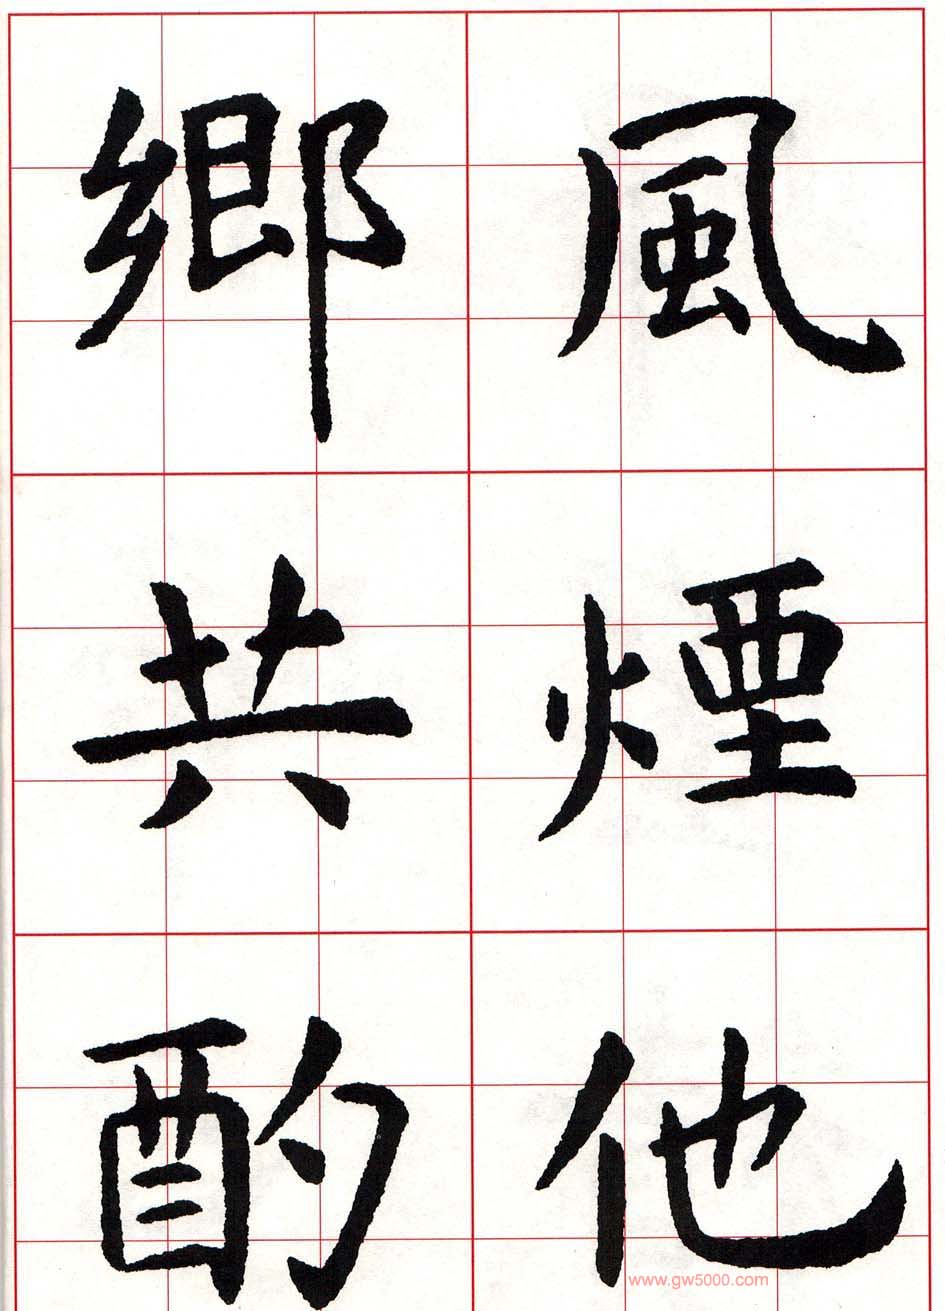 風煙他
鄉共酌
www.gw5000.com